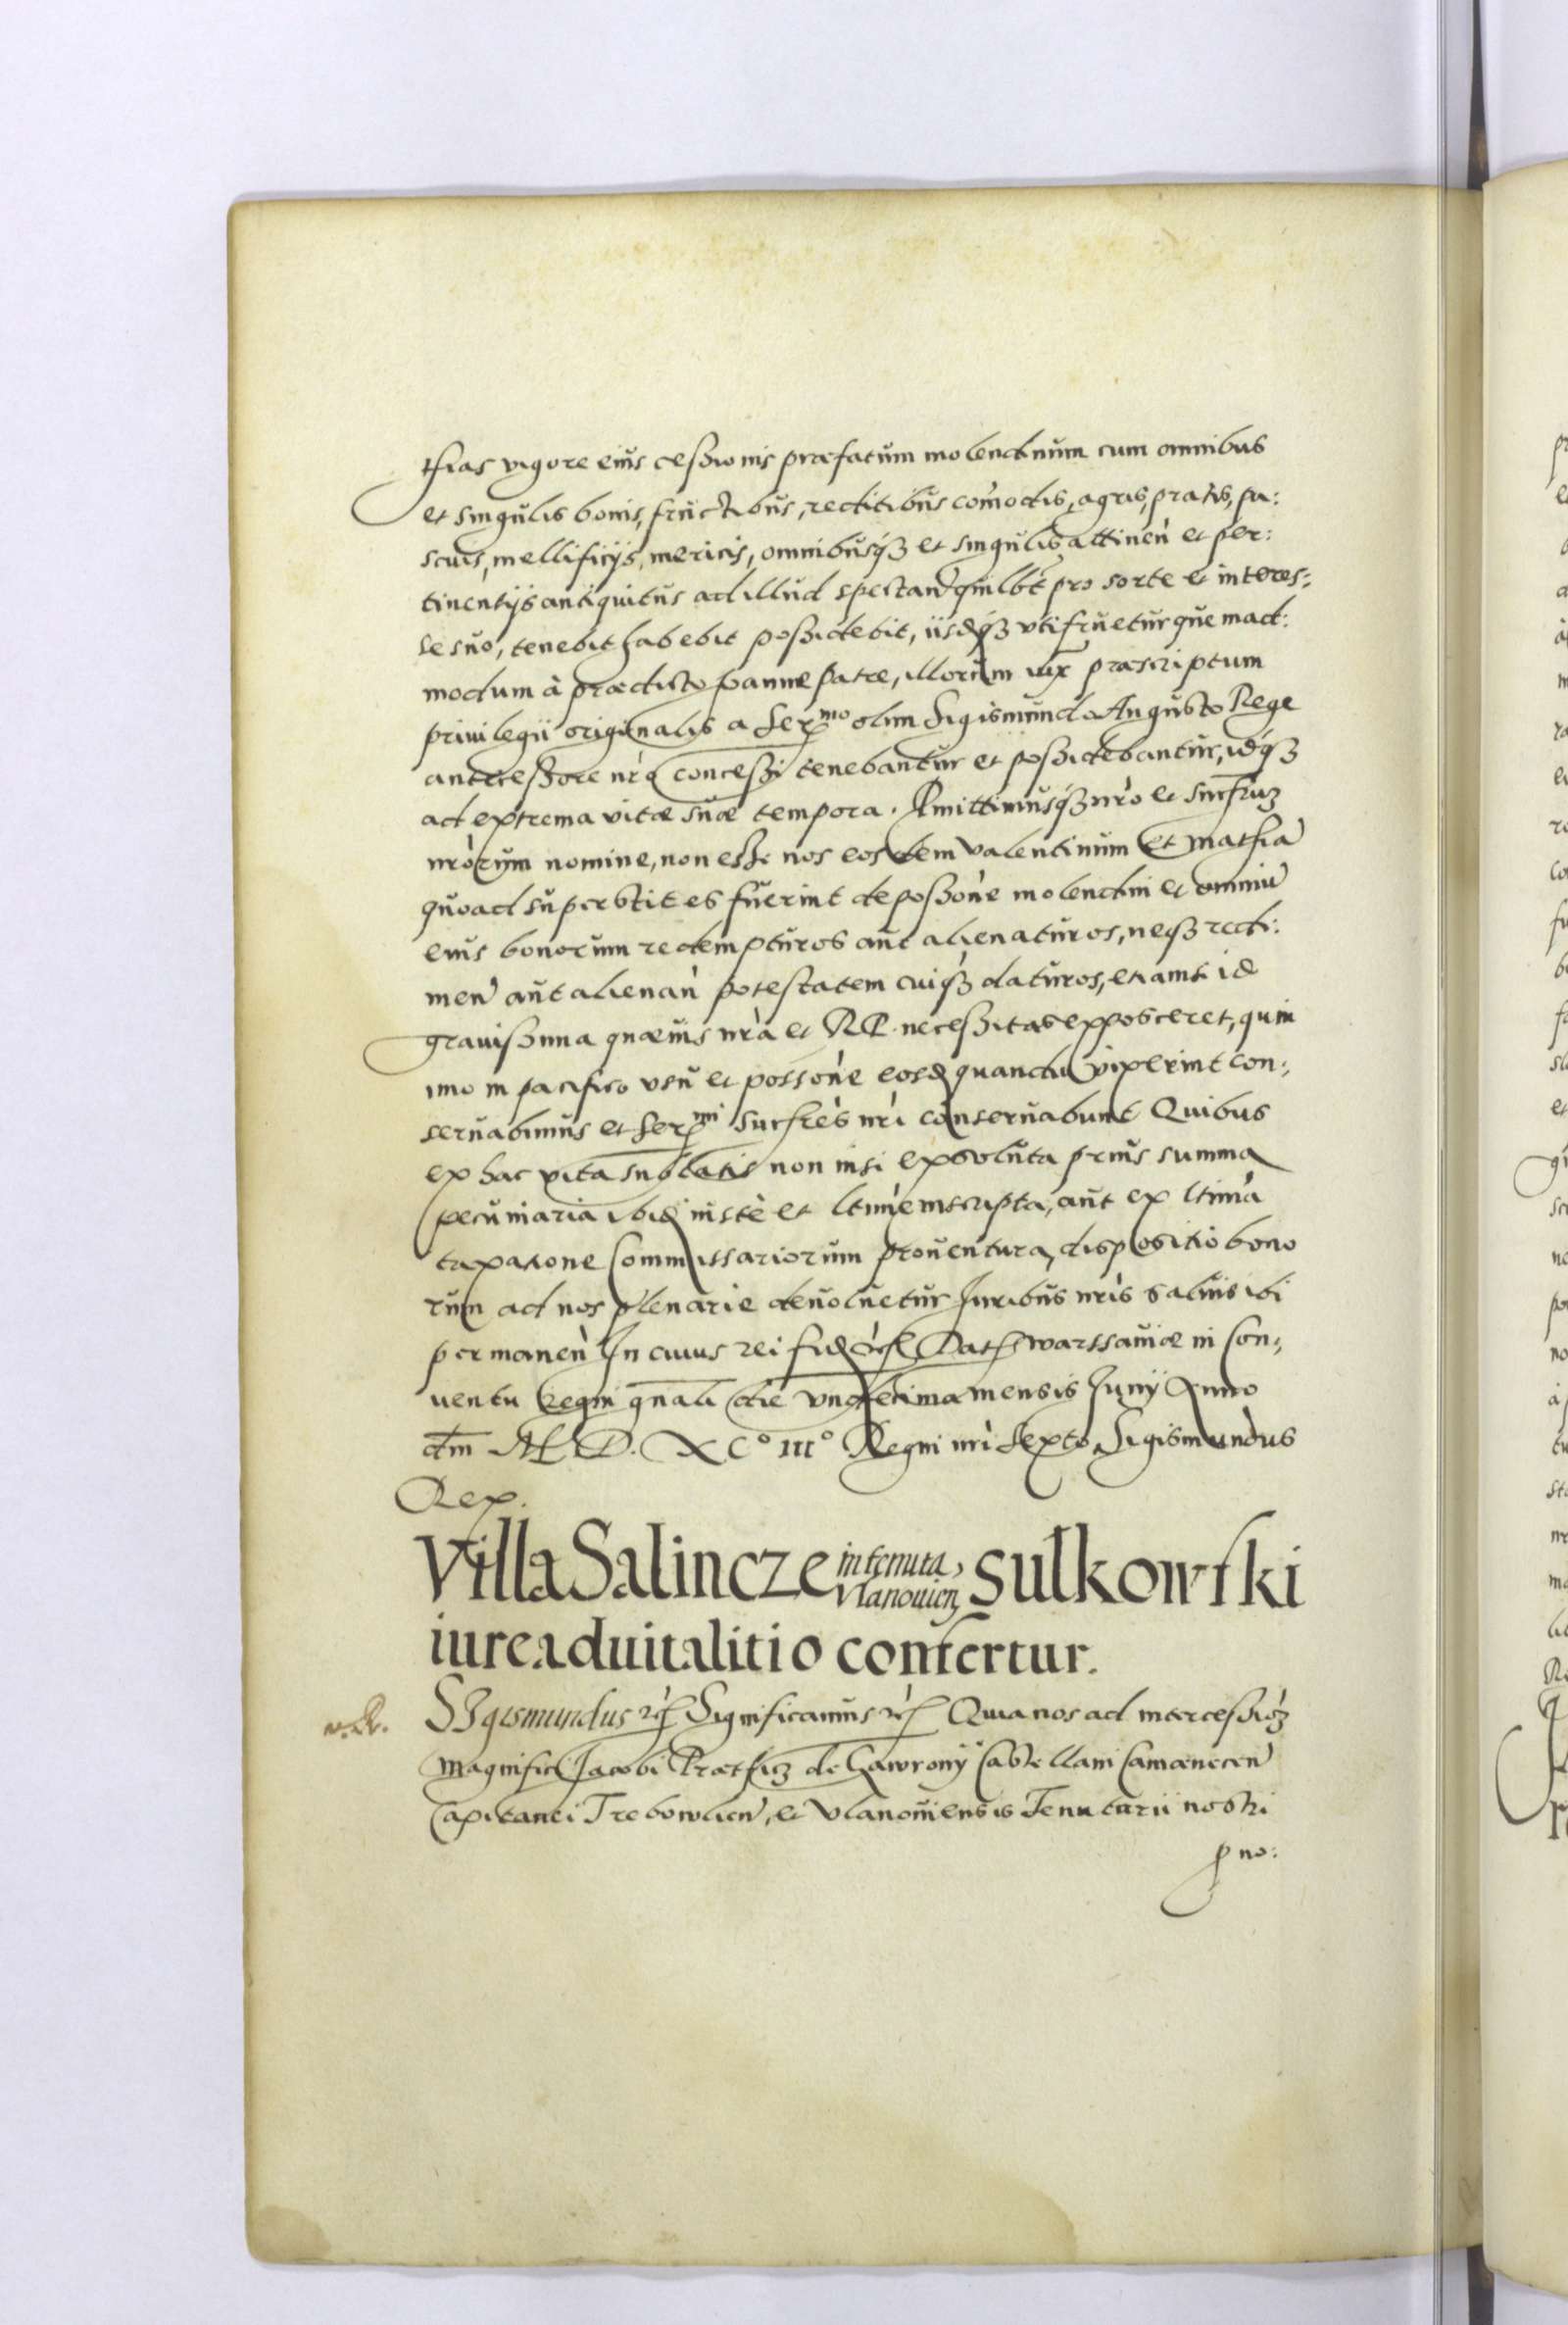 thias vigore eius cessionis præfatum molendinum cum omnibus
et singulis bonis, fructibus, reditibus comodis, agris, pratis, pa:
scuis, mellificijs, mericis, omnibusq3 et singulis attinen et per:
tinentijs antiquitus ad illud spectan quilbt pro sorte et interes:
se suo, tenebit habebit possidebit, iisdq3 vti fruetur quemad:
modum à prædicto Joanne patre, illorum iux præscriptum
priuilegii originalis a Sermo olim Sigismundo Augusto Rege
antecessore nro concessi tenebantur et possidebantur, idq3
ad extrema vitæ suæ tempora. Pmittimusq3 nro et
nrorum nomine, non esse nos eosdem Valentinum et Mathia
quoad superstites fuerint de possone molendini et omniu
eius bonorum redempturos aut alienaturos, neq3 redi:
men aut alienan potestatem cuiq3 daturos, etiamsi id
grauissima quæuis nra et RP. necessitas exposceret, quin
imo in pacifico vsu et possone eosd quandiu vixerint con:
seruabimus et Sermi sucfres nri conseruabunt Quibus
ex hac vita sublatis non nisi exsoluta prius summa
pecuniaria ibid iuste et ltime inscripta, aut ex ltima
taxatone Commissariorum prouentura, dispositio bono
rum ad nos plenarie deuoluetur Juribus nris saluis ibi
permanen In cuius rei fid Dat Warssauiæ in Con:
uentu Regni gnali die vndecima mensis Junij Anno
dm M. D. XC° III° Regni nri Sexto Sigismundus
Rex.
Villa Salincze in tenuta Vlanouien Sulkowski
iure aduitalitio confertur.
Sigismundus Significamus Quia nos ad intercessio3
Magnifici Jacobi Prætfic3 de Gawrony Castellani Camænecen
Capitanei Trebowlien, et Vlanouiensis Tenutarii nostri
p no: